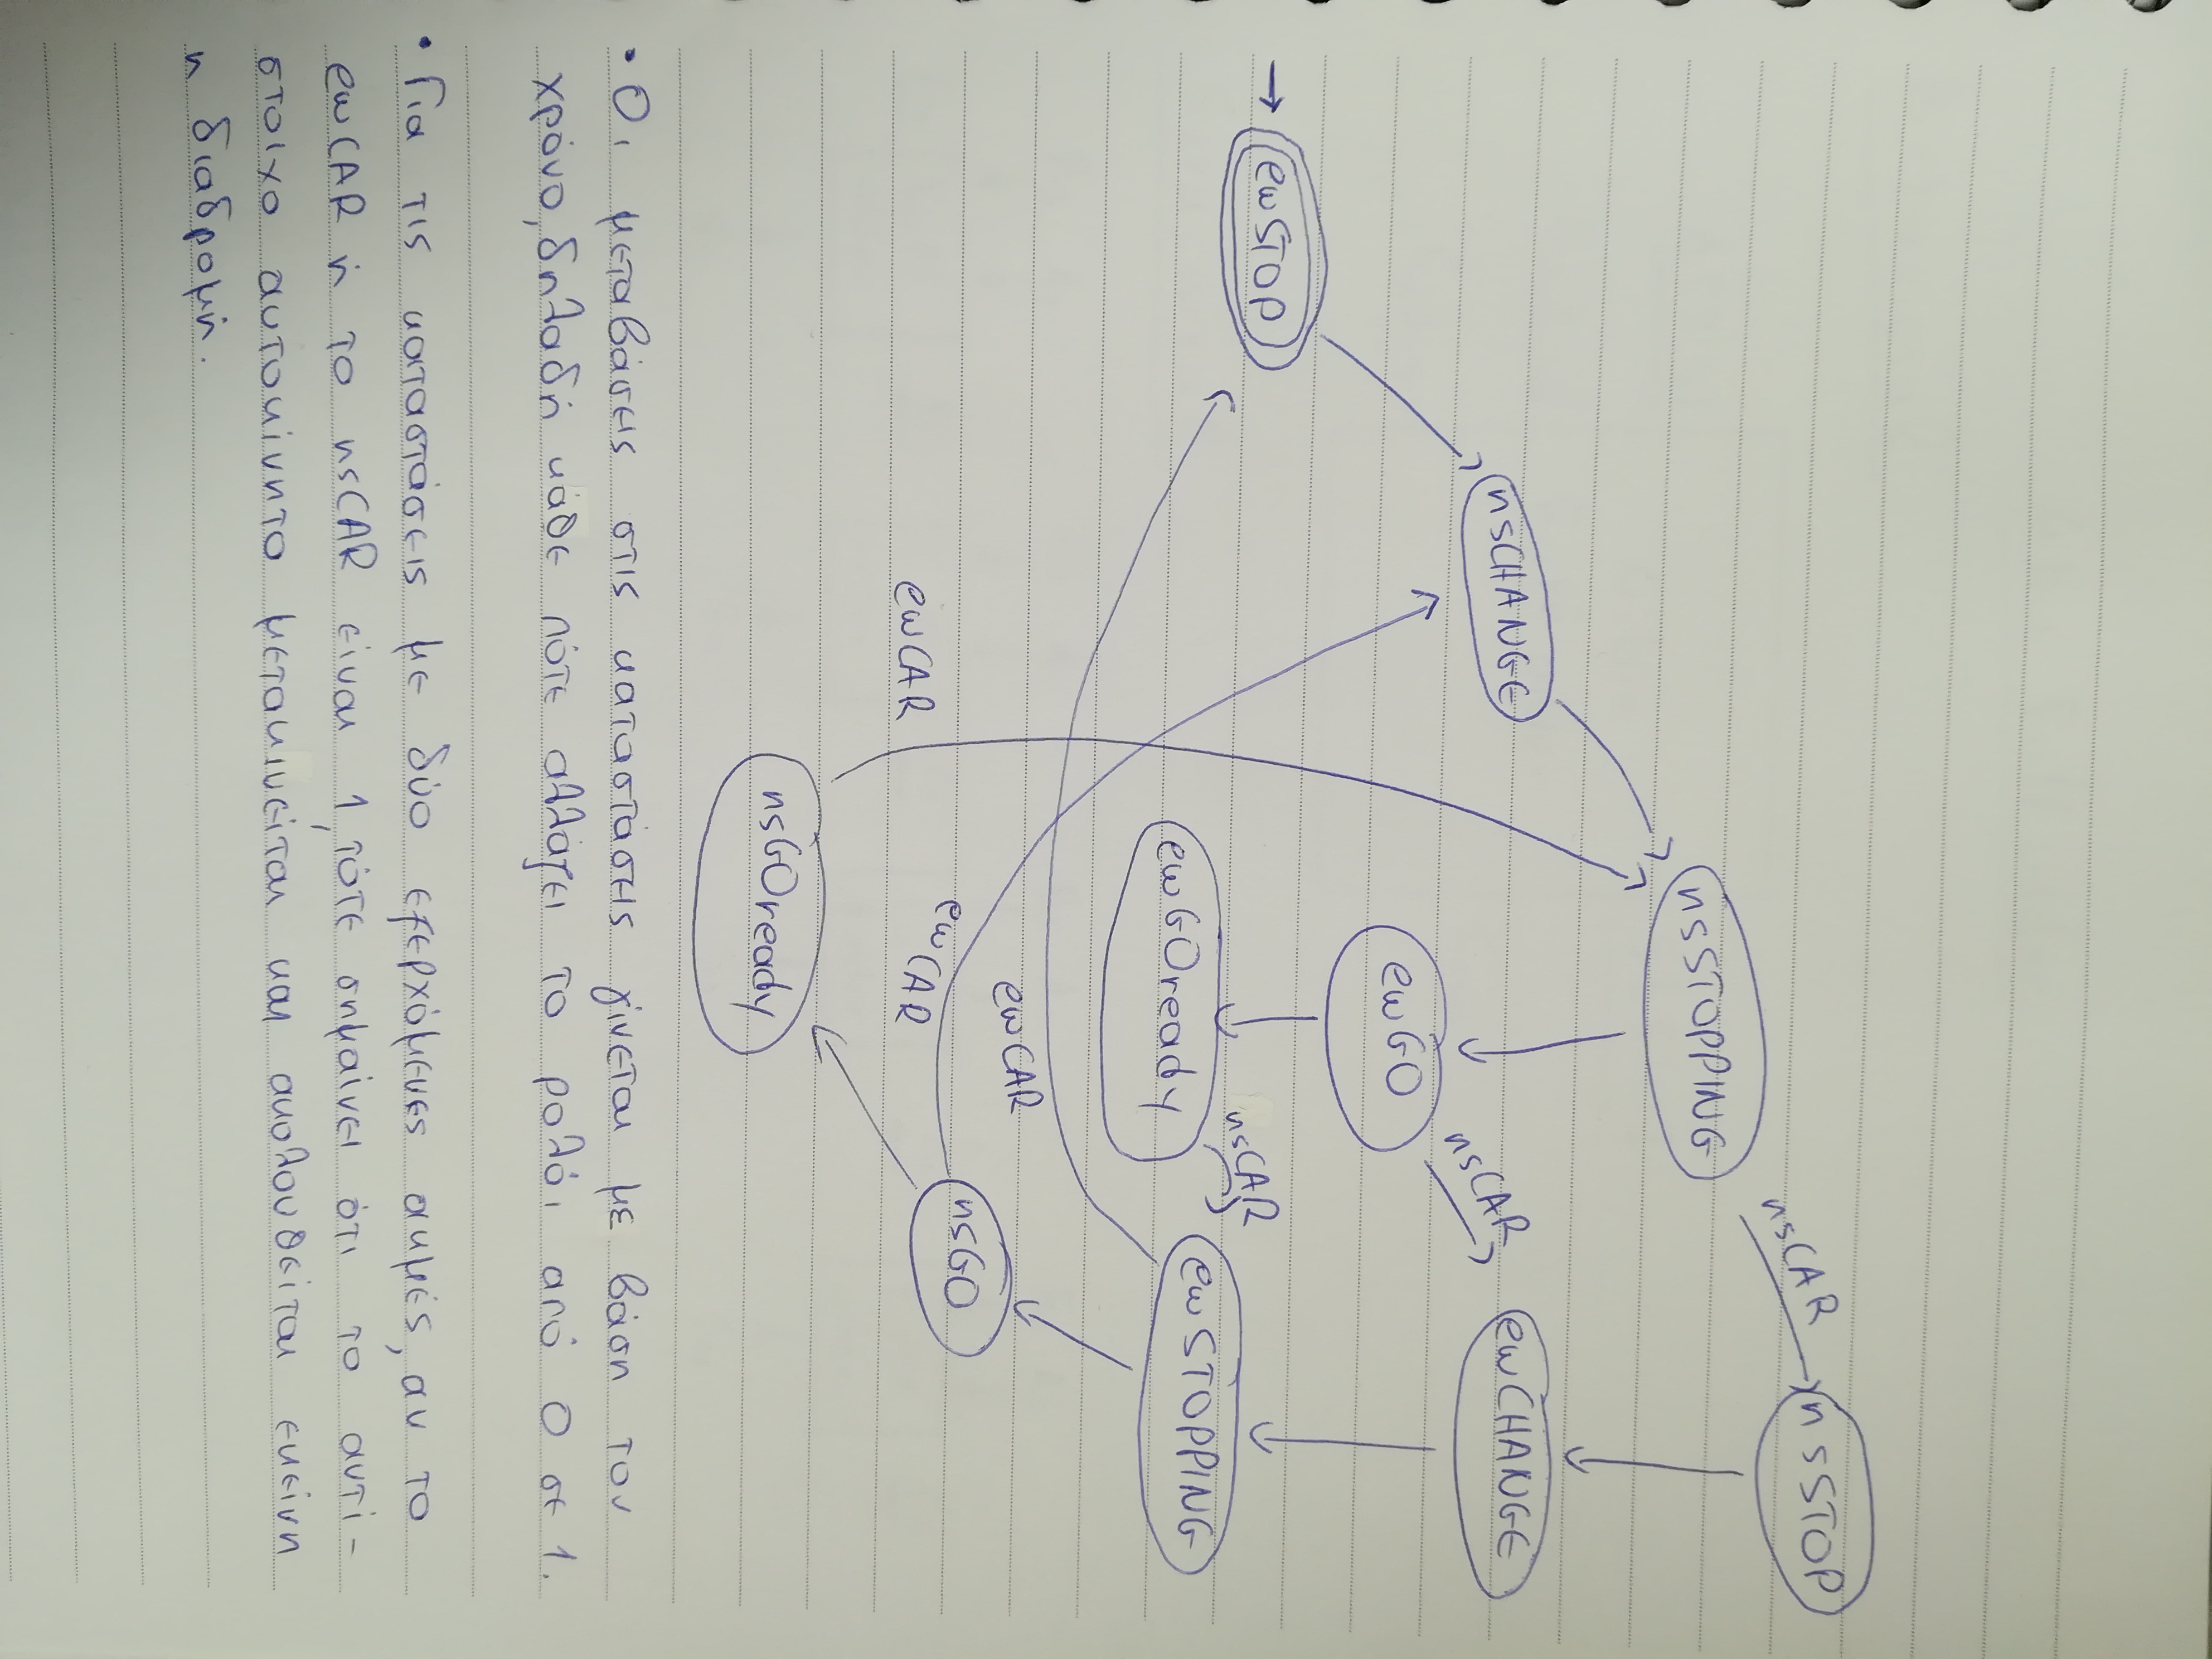 nsCAR
nsSTOP
nsSTOPPING
nsCHANGE
nsCAR
ewCHANGE
ewGO
ewSTOP
nsCAR
ewGOready
ewSTOPPING
ewCAR
nsGO
ewCAR
ewCAR
nsGOready
• Οι μεταβάσεις στις καταστάσεις γίνεται με βάση τον
χρόνο, δηλαδή κάθε πότε αλλάζει το ρολόι από 0 σε 1.
• Για τις καταστάσεις με δύο εξερχόμενες ακμές, αν το
ewCAR ή το nsCAR είναι 1, τότε σημαίνει ότι το αντί-
στοιχο αυτοκίνητο μετακινείται και ακολουθείται εκείνη
η διαδρομή.